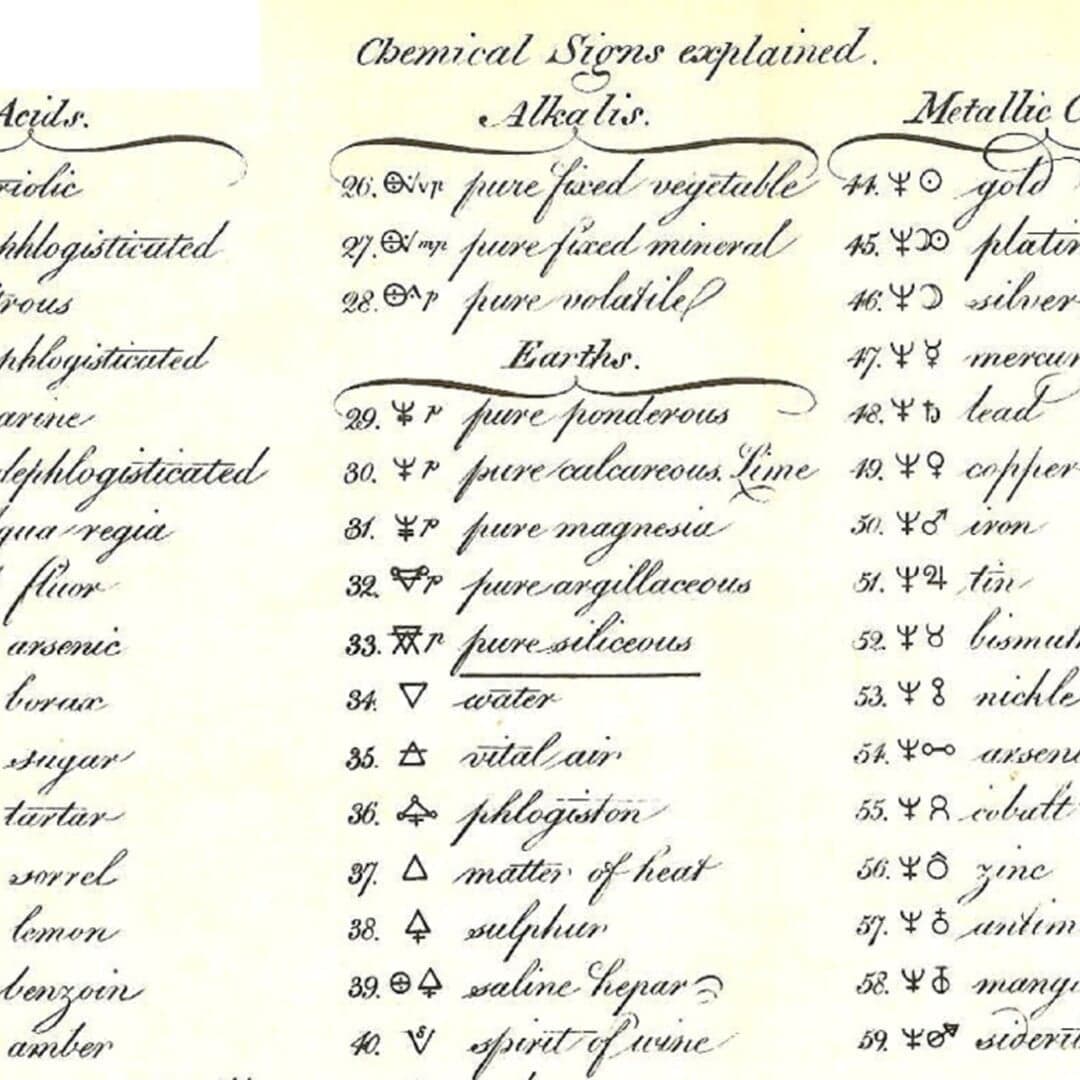 Chemical Signs explained.
Acids.
phlogisticated
phlogisticated
dephlogisticated
regia
fluor
arsenic
borax
sugar
tartar
sorrel
lemon
benzoin
amber
Alkalis.
26. vp pure fixed vegetable
27. mp pure fixed mineral
28. p pure volatile
Earths.
29. p pure ponderous
30. p pure calcareous. Lime
31. p pure magnesia
32. p pure argillaceous
33. p pure siliceous
34. water
35. vital air
36. phlogiston
37. matter of heat
38. sulphur
39. saline hepar
40. spirit of wine
Metallic
44. gold
45.
46. silver
47.
48. lead
49. copper
50. iron
51. tin
52.
53. nickle
54.
55. cobalt
56. zinc
57.
58.
59.